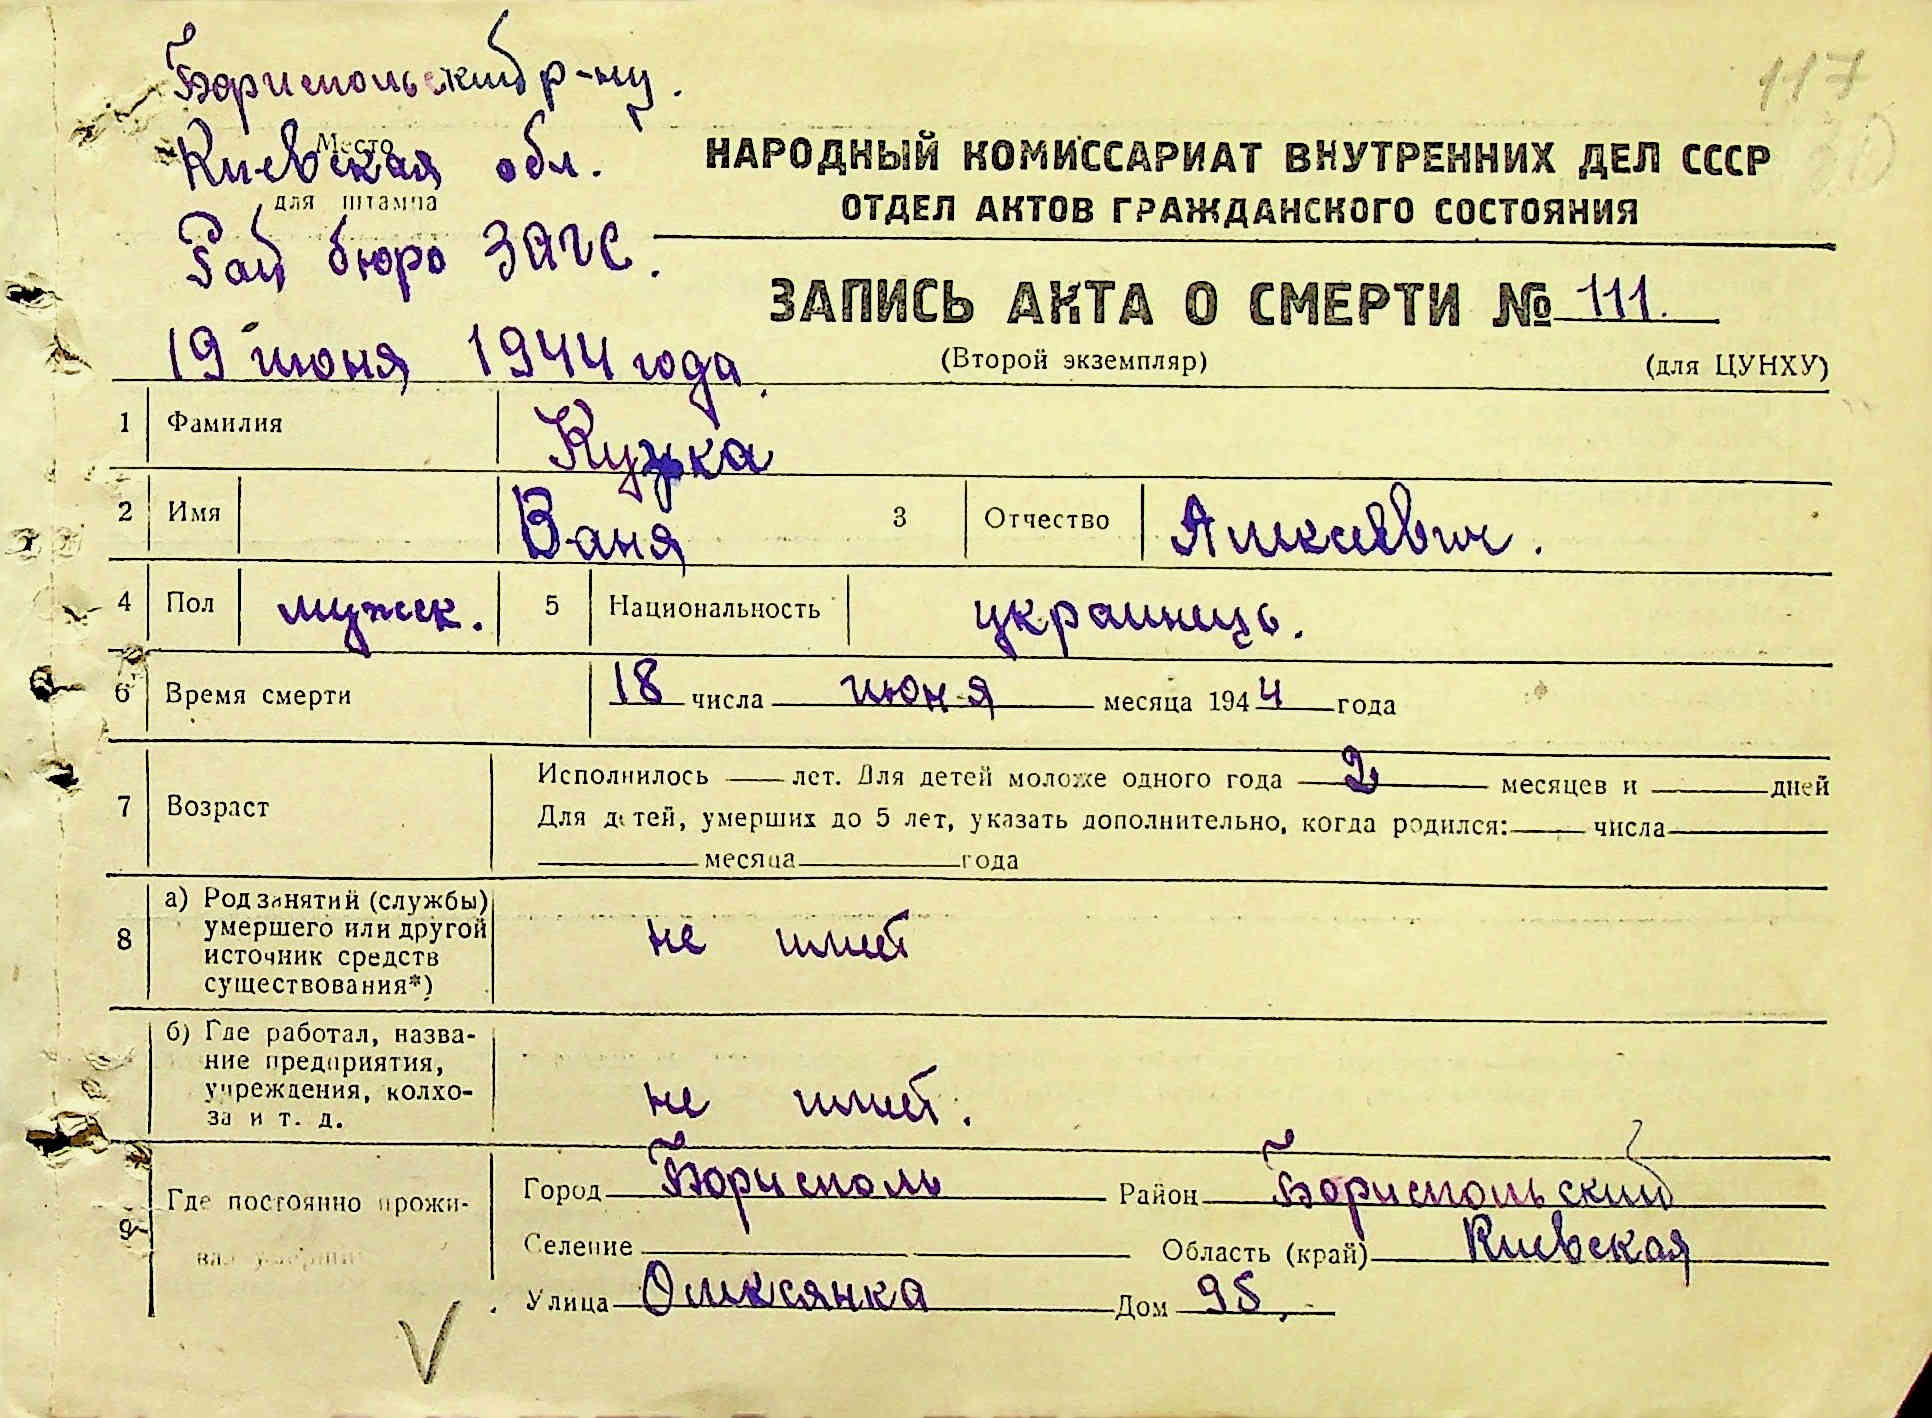 117
Бориспольский р-ну.
Место
Киевская обл.
для штампа
Рай бюро ЗАГС.
19 июня 1944 года.
НАРОДНЫЙ КОМИССАРИАТ ВНУТРЕННИХ ДЕЛ СССР
ОТДЕЛ АКТОВ ГРАЖДАНСКОГО СОСТОЯНИЯ
ЗАПИСЬ АКТА О СМЕРТИ № 111.
(Второй экземпляр) (для ЦУНХУ)
1 Фамилия Кужка
2 Имя Ваня 3 Отчество Алексеевич.
4 Пол мужск. 5 Национальность украинець.
6 Время смерти 18 числа июня месяца 1944 года
7 Возраст Исполнилось — лет. Для детей моложе одного года 2 месяцев и дней
Для детей, умерших до 5 лет, указать дополнительно, когда родился: числа
месяца года
8 а) Род занятий (службы)
умершего или другой
источник средств
существования*)
не имеет
б) Где работал, назва-
ние предприятия,
учреждения, колхо-
за и т. д.
не имеет.
9 Где постоянно прожи-
вал умерший
Город Борисполь Район Бориспольский
Селение Область (край) Киевская
Улица Олексянка Дом 95.